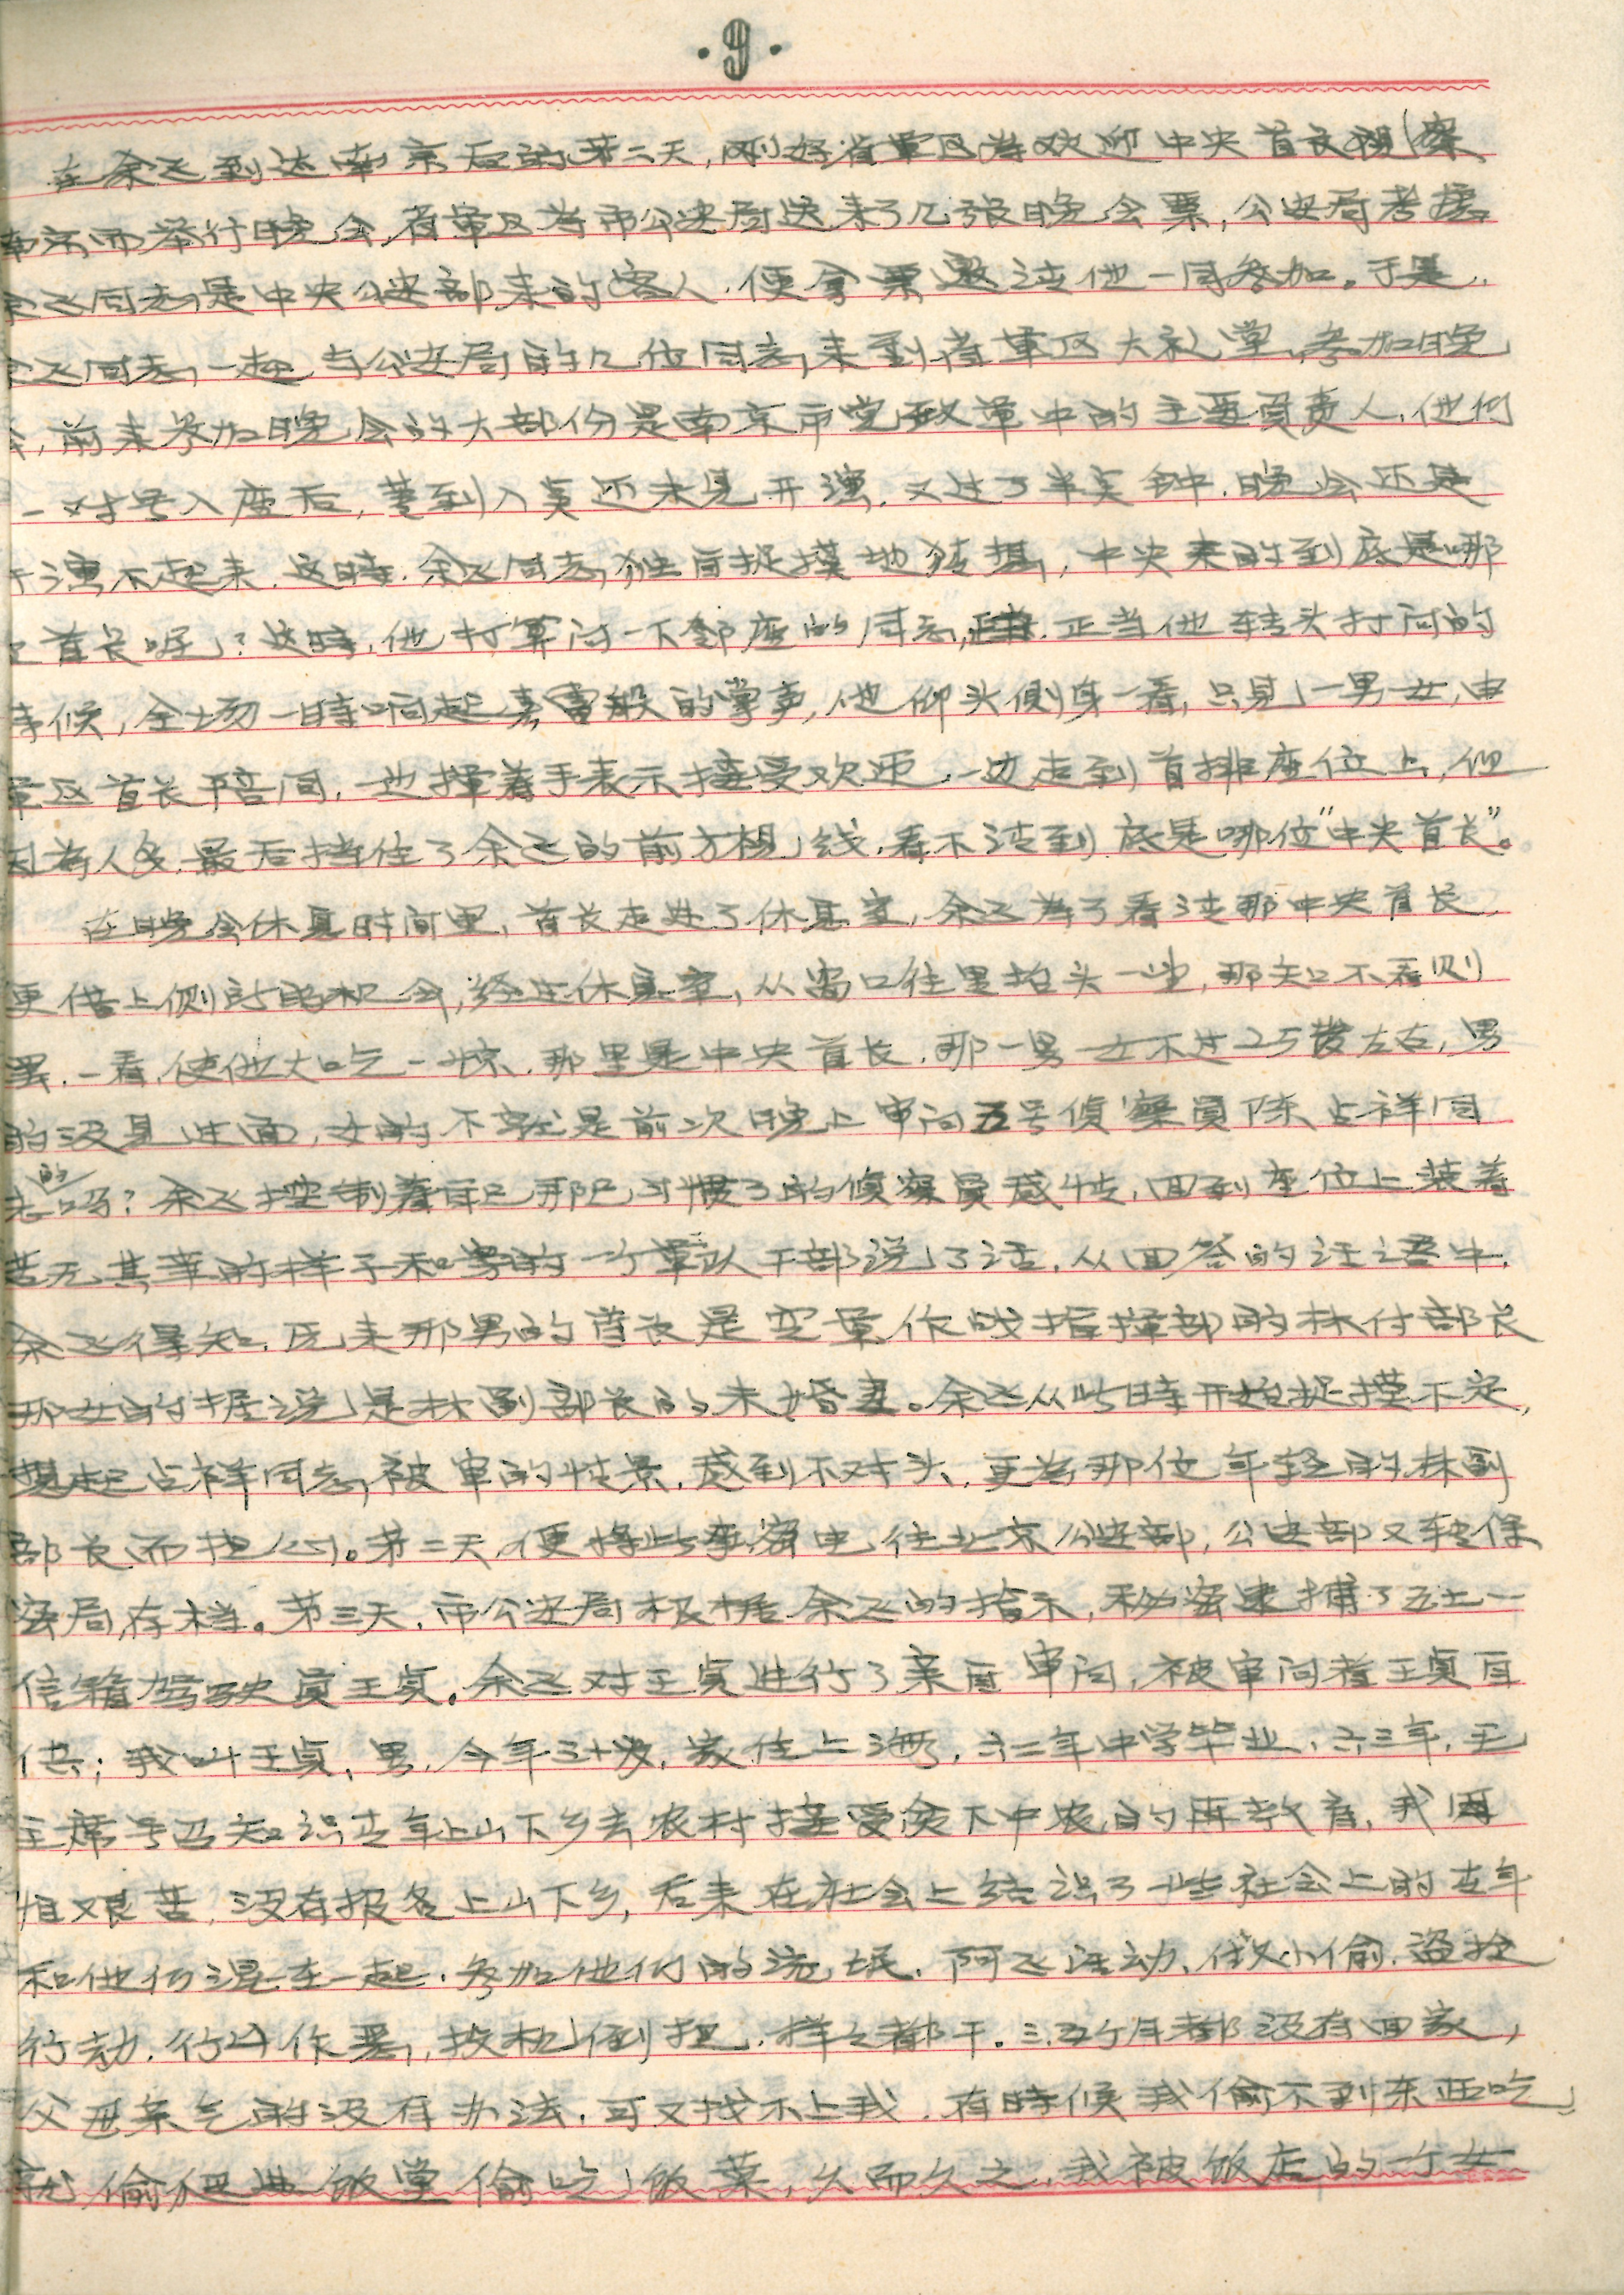 ·9·
在余飞到达南京后的第二天,刚好省军区为欢迎中央首长视察
南京而举行晚会,省军区为市公安局送来了几张晚会票,公安局考虑
余飞同志是中央公安部来的客人,便拿票邀请他一同参加。于是,
余飞同志一起与公安局的几位同志来到省军区大礼堂,参加晚
会,前来参加晚会的大部份是南京市党政军中的主要负责人,他们
一对号入座后,等到八点还未见开演,又过了半点钟,晚会还是
开演不起来,这時,余飞同志独自捉摸地猜想,中央来的到底是哪
首长呢?这時,他打算问一下邻座的同志,正当他转头打问的
時候,全场一時响起春雷般的掌声,他仰头侧身一看,只见一男一女,由
军区首长陪同,一边挥着手表示接受欢迎,一边走到首排座位上,但
因为人多,最后挡住了余飞的前方视线,看不清到底是哪位“中央首长”。
在晚会休息时间里,首长走进了休息室,余飞为了看清那中央首长,
便借上侧所的机会,经过休息室,从窗口往里抬头一望,那知不看则
罢,一看,使他大吃一惊,那里是中央首长,那一男一女不过25岁左右,男
的没见过面,女的不就是前次晚上审问五号侦察员陈占祥同
志的吗?余飞控制着自己那已习惯了的侦察员感情,回到座位上装着
若无其事的样子和旁的一个军队干部说了话,从回答的话语中,
余飞得知,原来那男的首长是空军作战指挥部的林付部长
那女的据说是林副部长的未婚妻。余飞从此時开始捉摸不定,
想起占祥同志被审的情景,感到不对头,更为那位年轻的林副
部长而担心。第二天,便将此事密电往北京公安部,公安部又转保
密局存档。第三天,市公安局根据余飞的指示,秘密逮捕了五七一
信箱驾驶员王贞。余飞对王贞进行了亲自审问,被审问者王贞自
供;我叫王贞,男,今年三十岁,家住上海,六二年中学毕业,六三年,毛
主席号召知识青年上山下乡去农村接受贫下中农的再教育,我因
怕艰苦,没有报名上山下乡,后来在社会上结识了一些社会上的青年
和他们混在一起,参加他们的流氓,阿飞活动,做小偷,盗抢
行劫,行凶作恶,投机倒把,样之都干。三、五个月都没有回家,
父母亲气的没有办法,可又找不上我,有時候我偷不到东西吃,
就偷偷进饭堂偷吃饭菜,久而久之,我被饭店的一个女